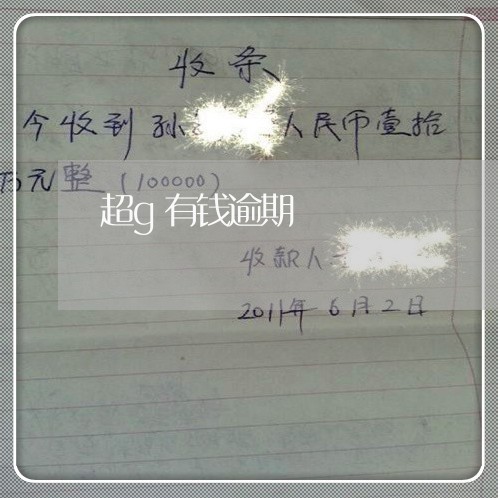 收条
今收到孙 人民币壹拾
万元整(100000)
超g有钱逾期
收款人
2011年6月2日